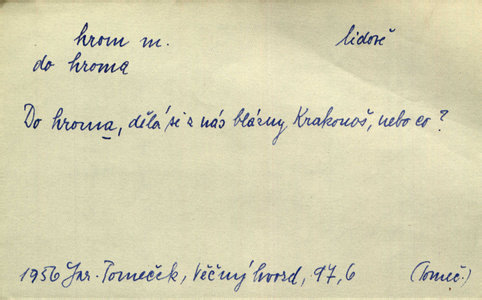 hrom m. lidově
do hroma
Do hroma, dělá si z nás blázny Krakonoš, nebo co?
1956 Jar. Tomeček, Věčný hvozd, 97,6 (Tomeč.)